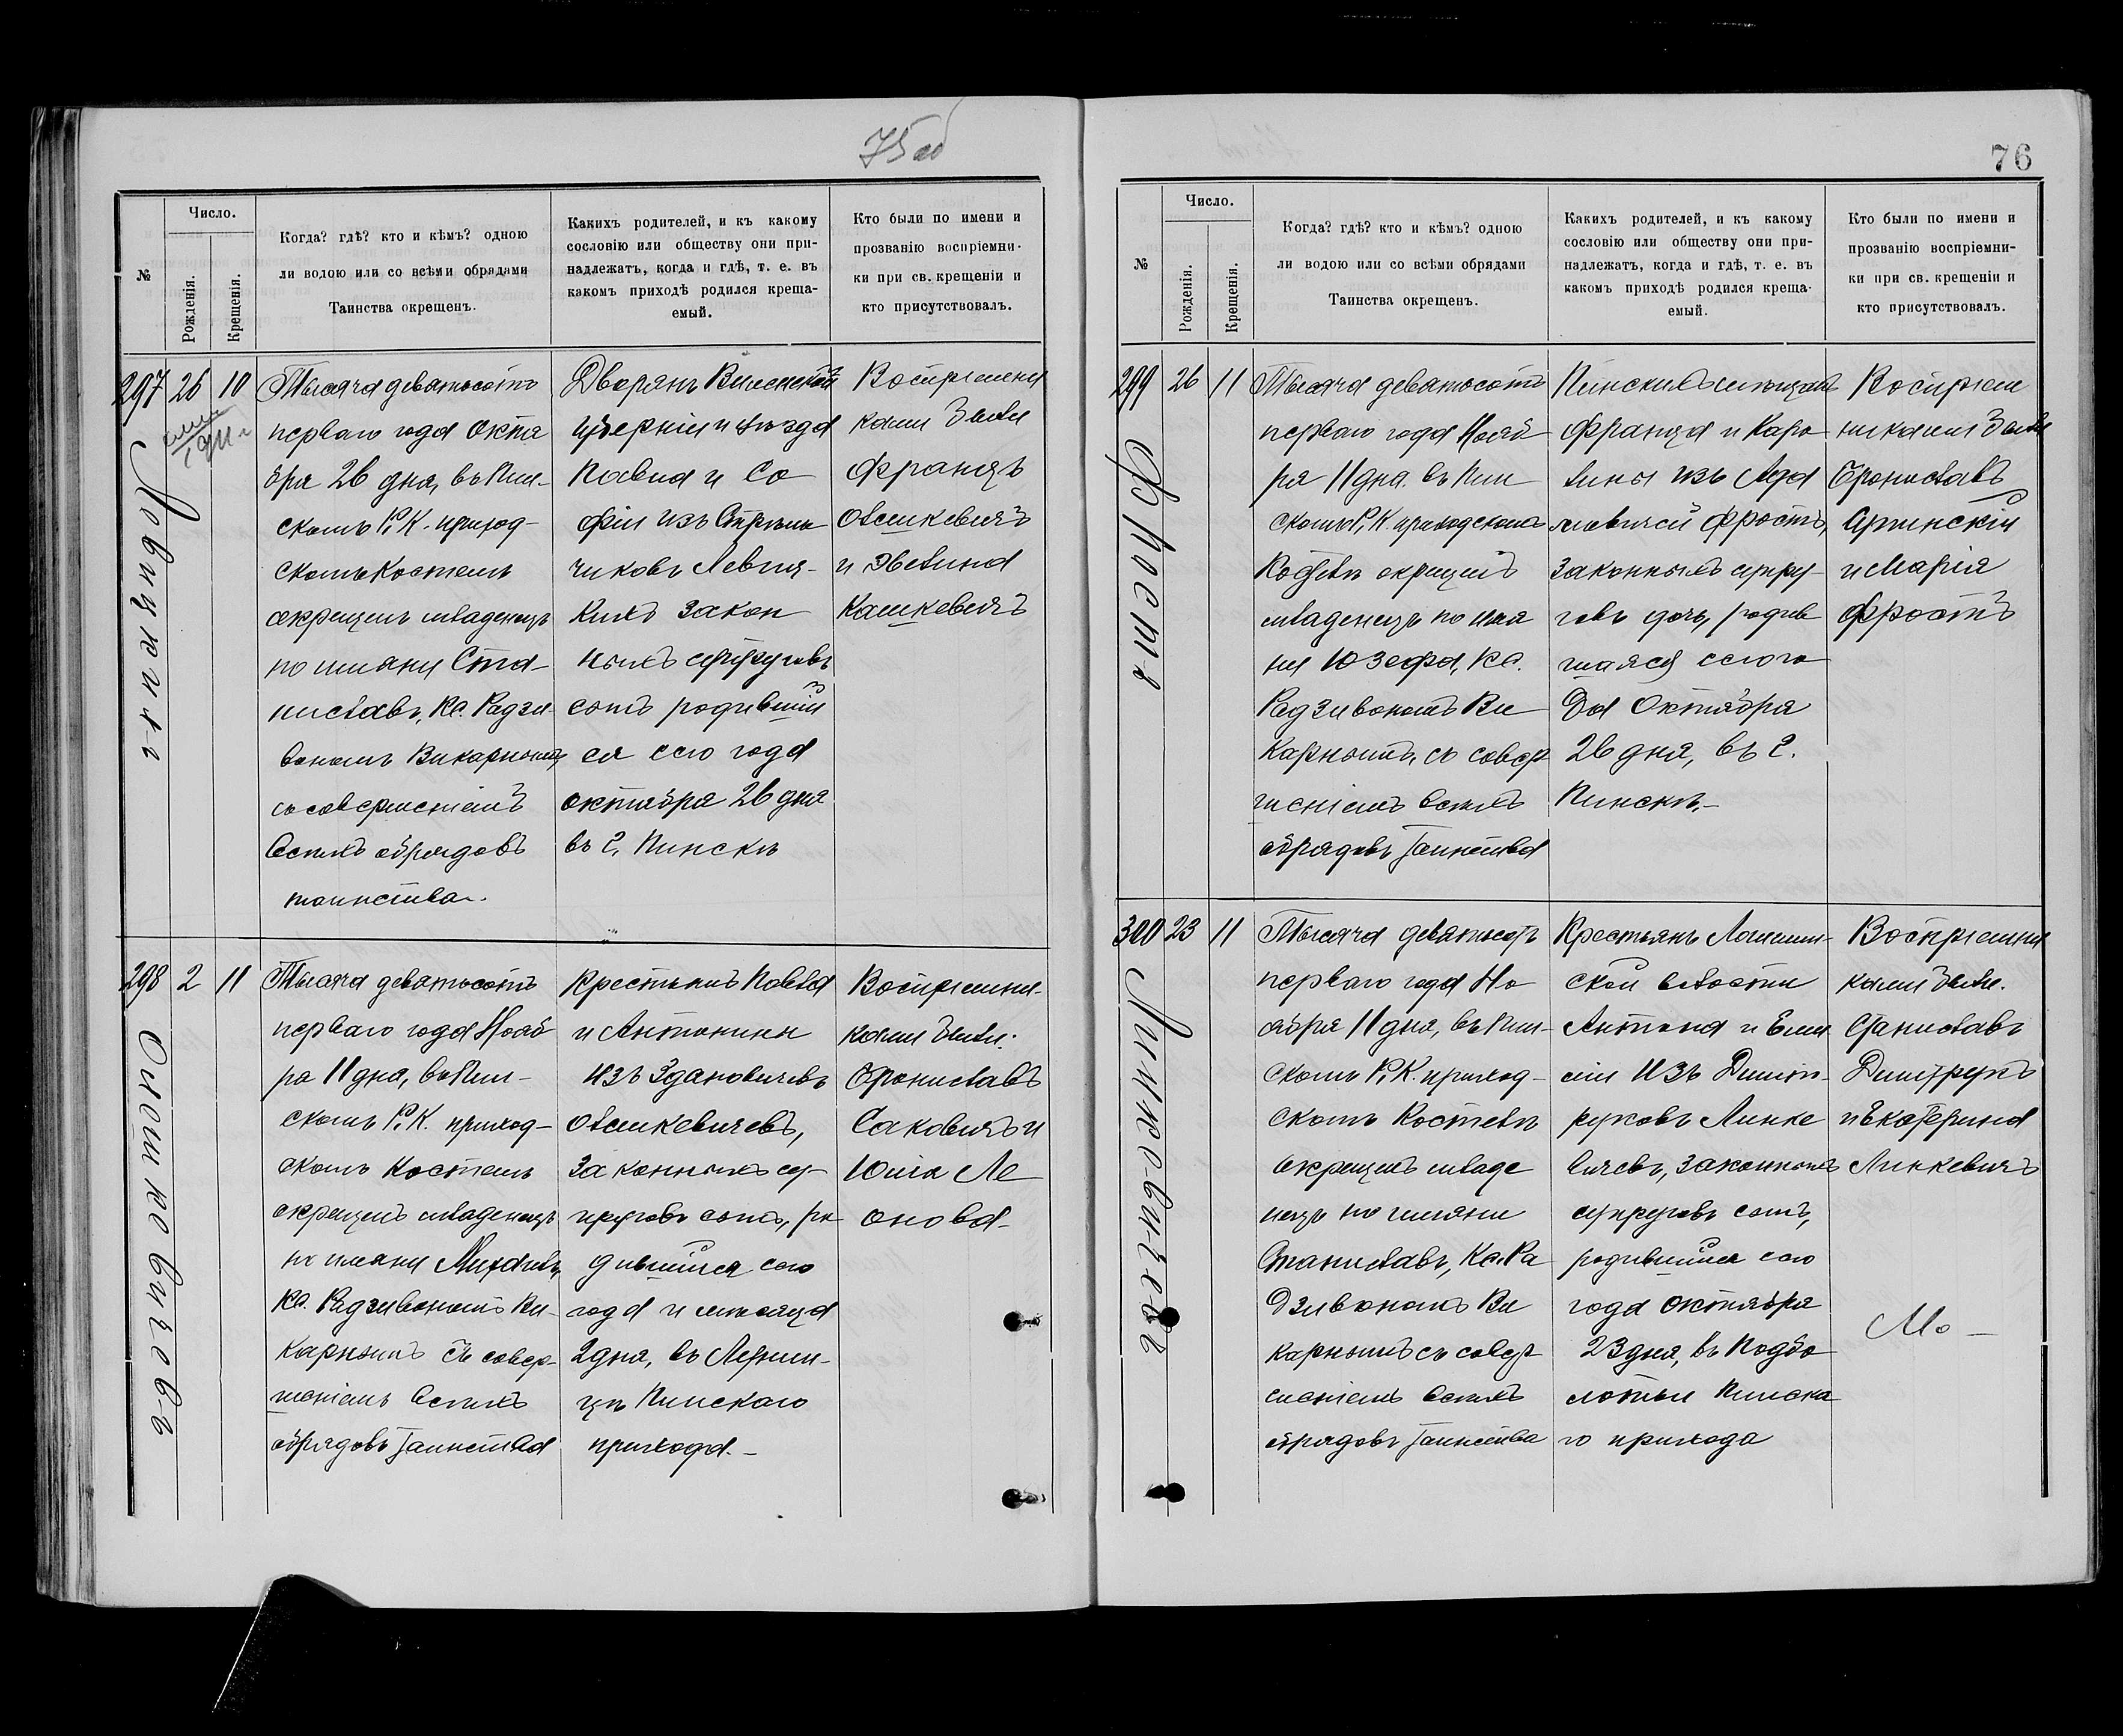 75 об
76
Число.
№
Рожденія.
Крещенія.
Когда? гдѣ? кто и кѣмъ? одною
ли водою или со всѣми обрядами
Таинства окрещенъ.
Какихъ родителей, и къ какому
сословію или обществу они при-
надлежатъ, когда и гдѣ, т. е. въ
какомъ приходѣ родился креща-
емый.
Кто были по имени и
прозванію воспріемни-
ки при св. крещеніи и
кто присутствовалъ.
297
26
10
1911 г
Тысяча девятьсотъ
перваго года Октя
бря 26 дня, въ Пин-
скомъ Р. К. приход-
скомъ Костелѣ
окрещенъ младенецъ
по имяни Ста-
ниславъ, Кс. Радзи-
вономъ Викарнымъ,
съ совершеніемъ
всѣхъ обрядовъ
таинства.
Дворянъ Виленской
губерніи и уѣзда
и Со
фіи изъ
чиковъ
кихъ закон
ныхъ супруговъ
сынъ родившій
ся сего года
октября 26 дня
въ г. Пинскѣ
Воспріемни
ками были
Францъ
Олешкевичъ
и Эвелина
Кашкевичъ
298
2
11
Олешкевичевъ
Тысяча девятьсотъ
перваго года Нояб
ря 11 дня, въ Пин-
скомъ Р. К. приход-
скомъ Костелѣ
окрещенъ младенецъ
по имяни Михаилъ,
Кс. Радзивономъ Ви-
карнымъ съ совер-
шеніемъ всѣхъ
обрядовъ Таинства
Крестьянъ Павла
и Антонины
изъ Здановичевъ
Олешкевичевъ,
законныхъ су-
пруговъ сынъ, ро
дившійся сего
года и мѣсяца
2 дня, въ
цѣ Пинскаго
прихода.-
Воспріемни-
ками были:
Брониславъ
Саковичъ и
Юлія Ле
онова
Число.
№
Рожденія.
Крещенія.
Когда? гдѣ? кто и кѣмъ? одною
ли водою или со всѣми обрядами
Таинства окрещенъ.
Какихъ родителей, и къ какому
сословію или обществу они при-
надлежатъ, когда и гдѣ, т. е. въ
какомъ приходѣ родился креща-
емый.
Кто были по имени и
прозванію воспріемни-
ки при св. крещеніи и
кто присутствовалъ.
299
26
11
Фростъ
Тысяча девятьсотъ
перваго года Нояб
ря 11 дня. въ Пин
скомъ Р. К. приходскомъ
Костелѣ окрещенъ
младенецъ по имя
ни Юзефа, Кс.
Радзивономъ Ви
карнымъ, съ совер
шеніемъ всѣхъ
обрядовъ Таинства
Пинскихъ мѣщанъ
Франца и Каро
лины изъ Ада
мовичей Фростъ,
законныхъ супру-
говъ дочь, родив
шаяся сего го
да Октября
26 дня, въ г.
Пинскѣ.-
Воспріем
никами были
Брониславъ
и Марія
Фростъ
300
23
11
Линкевичевъ
Тысяча девятьсотъ
перваго года Но
ября 11 дня, въ Пин-
скомъ Р. К. приход-
скомъ Костелѣ
окрещенъ младе
нецъ по имяни
Станиславъ, Кс. Ра
дзивономъ Ви
карнымъ съ совер
шеніемъ всѣхъ
обрядовъ Таинства
Крестьянъ Логишин-
ской волости
Антона и
изъ Дмит-
руковъ Линке
вичевъ, законныхъ
супруговъ сынъ,
родившійся сего
года октября
23 дня, въ Подбо
лотьи Пинска
го прихода
Воспріемни
ками были.
Станиславъ
Дмитрукъ
и Екатерина
Линкевичъ